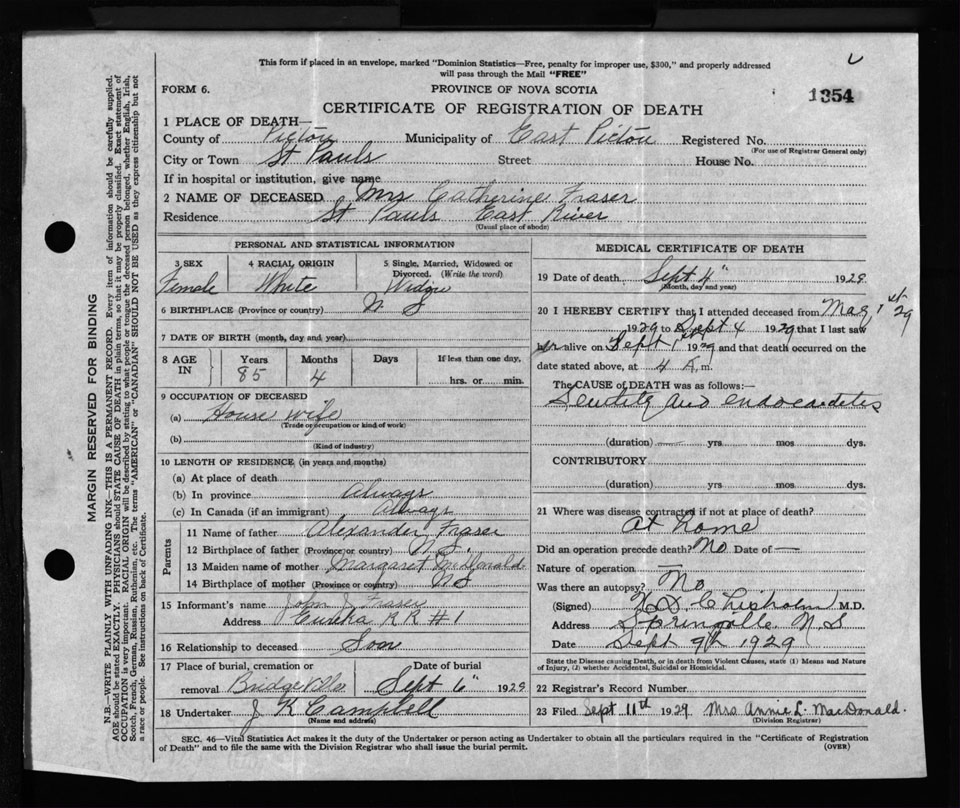 This form if placed in an envelope, marked "Dominion Statistics—Free, penalty for improper use, $300," and properly addressed
will pass through the Mail "FREE"
FORM 6.
PROVINCE OF NOVA SCOTIA
1354
CERTIFICATE OF REGISTRATION OF DEATH
1 PLACE OF DEATH—
County of Pictou Municipality of East Pictou Registered No.
(For use of Registrar General only)
City or Town St Pauls Street House No.
If in hospital or institution, give name
2 NAME OF DECEASED Mrs Catherine Fraser
Residence St Pauls East River
(Usual place of abode)
PERSONAL AND STATISTICAL INFORMATION
3 SEX 4 RACIAL ORIGIN 5 Single, Married, Widowed or
Divorced. (Write the word)
Female White Widow
6 BIRTHPLACE (Province or country) N S
7 DATE OF BIRTH (month, day and year)
8 AGE IN Years Months Days If less than one day
85 4 hrs. or min.
9 OCCUPATION OF DECEASED
(a) House wife
(Trade or occupation or kind of work)
(b)
(Kind of industry)
10 LENGTH OF RESIDENCE (in years and months)
(a) At place of death
(b) In province Always
(c) In Canada (if an immigrant) Always
Parents
11 Name of father Alexander Fraser
12 Birthplace of father (Province or country) N S.
13 Maiden name of mother Margaret McDonald
14 Birthplace of mother (Province or country) N S
15 Informant's name John J Fraser
Address Eureka R R # 1
16 Relationship to deceased Son
17 Place of burial, cremation or Date of burial
removal Bridgeville Sept 6" 1929
18 Undertaker J K Campbell
(Name and address)
MEDICAL CERTIFICATE OF DEATH
19 Date of death Sept 4" 1929
(Month, day and year)
20 I HEREBY CERTIFY that I attended deceased from May 1st 29
1929 to Sept 4 1929 that I last saw
her alive on Sept 1st 1929 and that death occurred on the
date stated above, at 4 A. m.
The CAUSE of DEATH was as follows:—
Senility and endocarditis
(duration) yrs mos dys.
CONTRIBUTORY
(duration) yrs. mos. dys.
21 Where was disease contracted if not at place of death?
at home
Did an operation precede death? No Date of —
Nature of operation —
Was there an autopsy? No
(Signed) Chisholm M.D.
Address Springville N.S
Date Sept 9th 1929
State the Disease causing Death, or in death from Violent Causes, state (1) Means and Nature
of Injury, (2) whether Accidental, Suicidal or Homicidal.
22 Registrar's Record Number
23 Filed Sept 11th 1929 Mrs Annie L. MacDonald.
(Division Registrar)
SEC. 46—Vital Statistics Act makes it the duty of the Undertaker or person acting as Undertaker to obtain all the particulars required in the "Certificate of Registration
of Death" and to file the same with the Division Registrar who shall issue the burial permit.
(OVER)
MARGIN RESERVED FOR BINDING
N.B.—WRITE PLAINLY WITH UNFADING INK—THIS IS A PERMANENT RECORD. Every item of information should be carefully supplied.
AGE should be stated EXACTLY. PHYSICIANS should STATE CAUSE OF DEATH in plain terms, so that it may be properly classified. Exact statement of
OCCUPATION is very important. RACIAL ORIGIN will be described by stating to what people or tongue the deceased person belonged, whether English, Irish,
Scotch, French, German, Russian, Ruthenian, etc. The terms "AMERICAN" or "CANADIAN" SHOULD NOT BE USED as they express citizenship but not
a race or people. See instructions on back of Certificate.